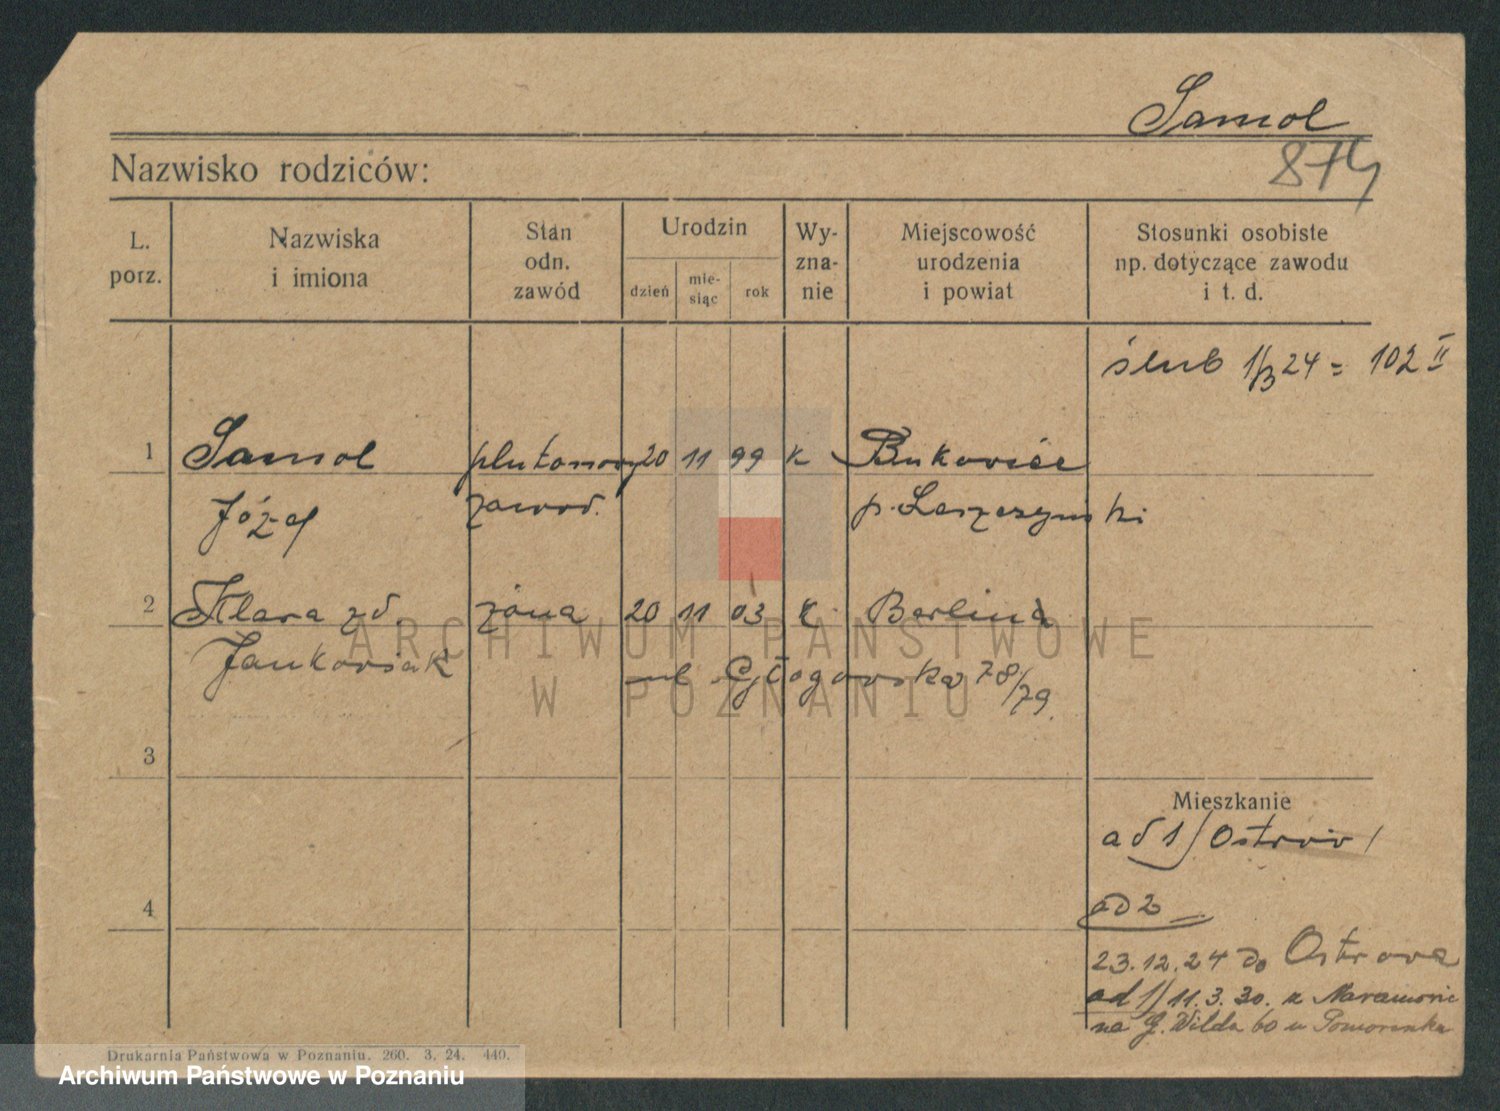 Samol
874
Nazwisko rodziców:
L. porz.
Nazwiska i imiona
Stan odn. zawód
Urodzin
dzień
mie- siąc
rok
Wy- zna- nie
Miejscowość urodzenia i powiat
Stosunki osobiste np. dotyczące zawodu i t. d.
ślub 1/3 24 = 102 II
1 Samol plutonowy 20 11 99 k Bukowiec
Józef zawod. p. Leszczyński
2 Klara zd. żona 20 11 03 k Berlina
Jankowiak ul Głogowska 78/79.
3
Mieszkanie
ad 1/ Ostrów /
4
ad 2
23.12.24 do Ostrowa
ad 1/ 11.3.30. z Naramowic
na G. Wilda 60 u Pomorenka
Drukarnia Państwowa w Poznaniu. 260. 3. 24. 440.
ARCHIWUM PAŃSTWOWE
W POZNANIU
Archiwum Państwowe w Poznaniu